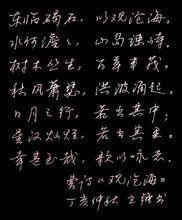 东临碣石，以观沧海。
水何澹々，山岛竦峙。
树木丛生，百草丰茂。
秋风萧瑟，洪波涌起。
日月之行，若出其中；
星汉灿烂，若出其里。
幸甚至哉，歌以咏志。
曹诗《观沧海》
丁亥仲秋 书